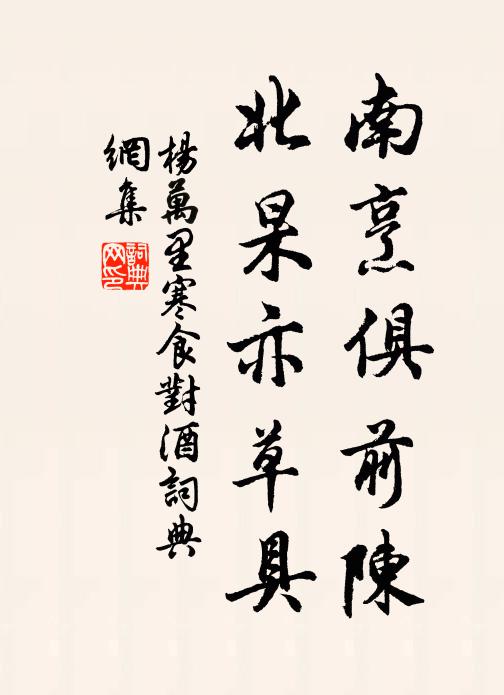 南烹俱前陳
北果亦草具
楊萬里寒食對酒詞典
網集
詞典
网印